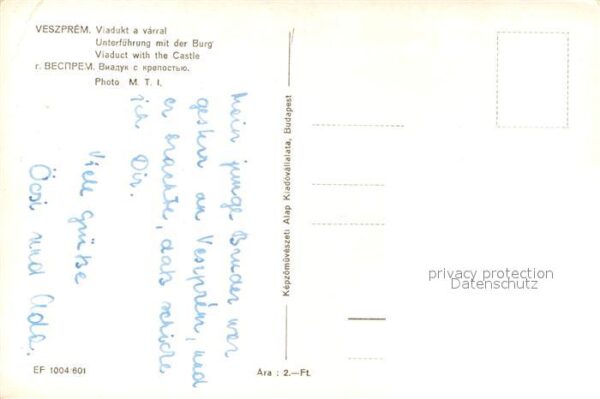 VESZPRÉM. Viadukt a várral
Unterführung mit der Burg
Viaduct with the Castle
г. ВЕСПРЕМ. Виадук с крепостью.
Photo M. T. I.
Mein junge Bruder war
gestern an Veszprém, und
er brachte, daß schicke
ich Dir.
Viele Grüße
Öcsi und Ada.
Képzőművészeti Alap Kiadóvállalata, Budapest
privacy protection
Datenschutz
EF 1004 601
Ára : 2.—Ft.